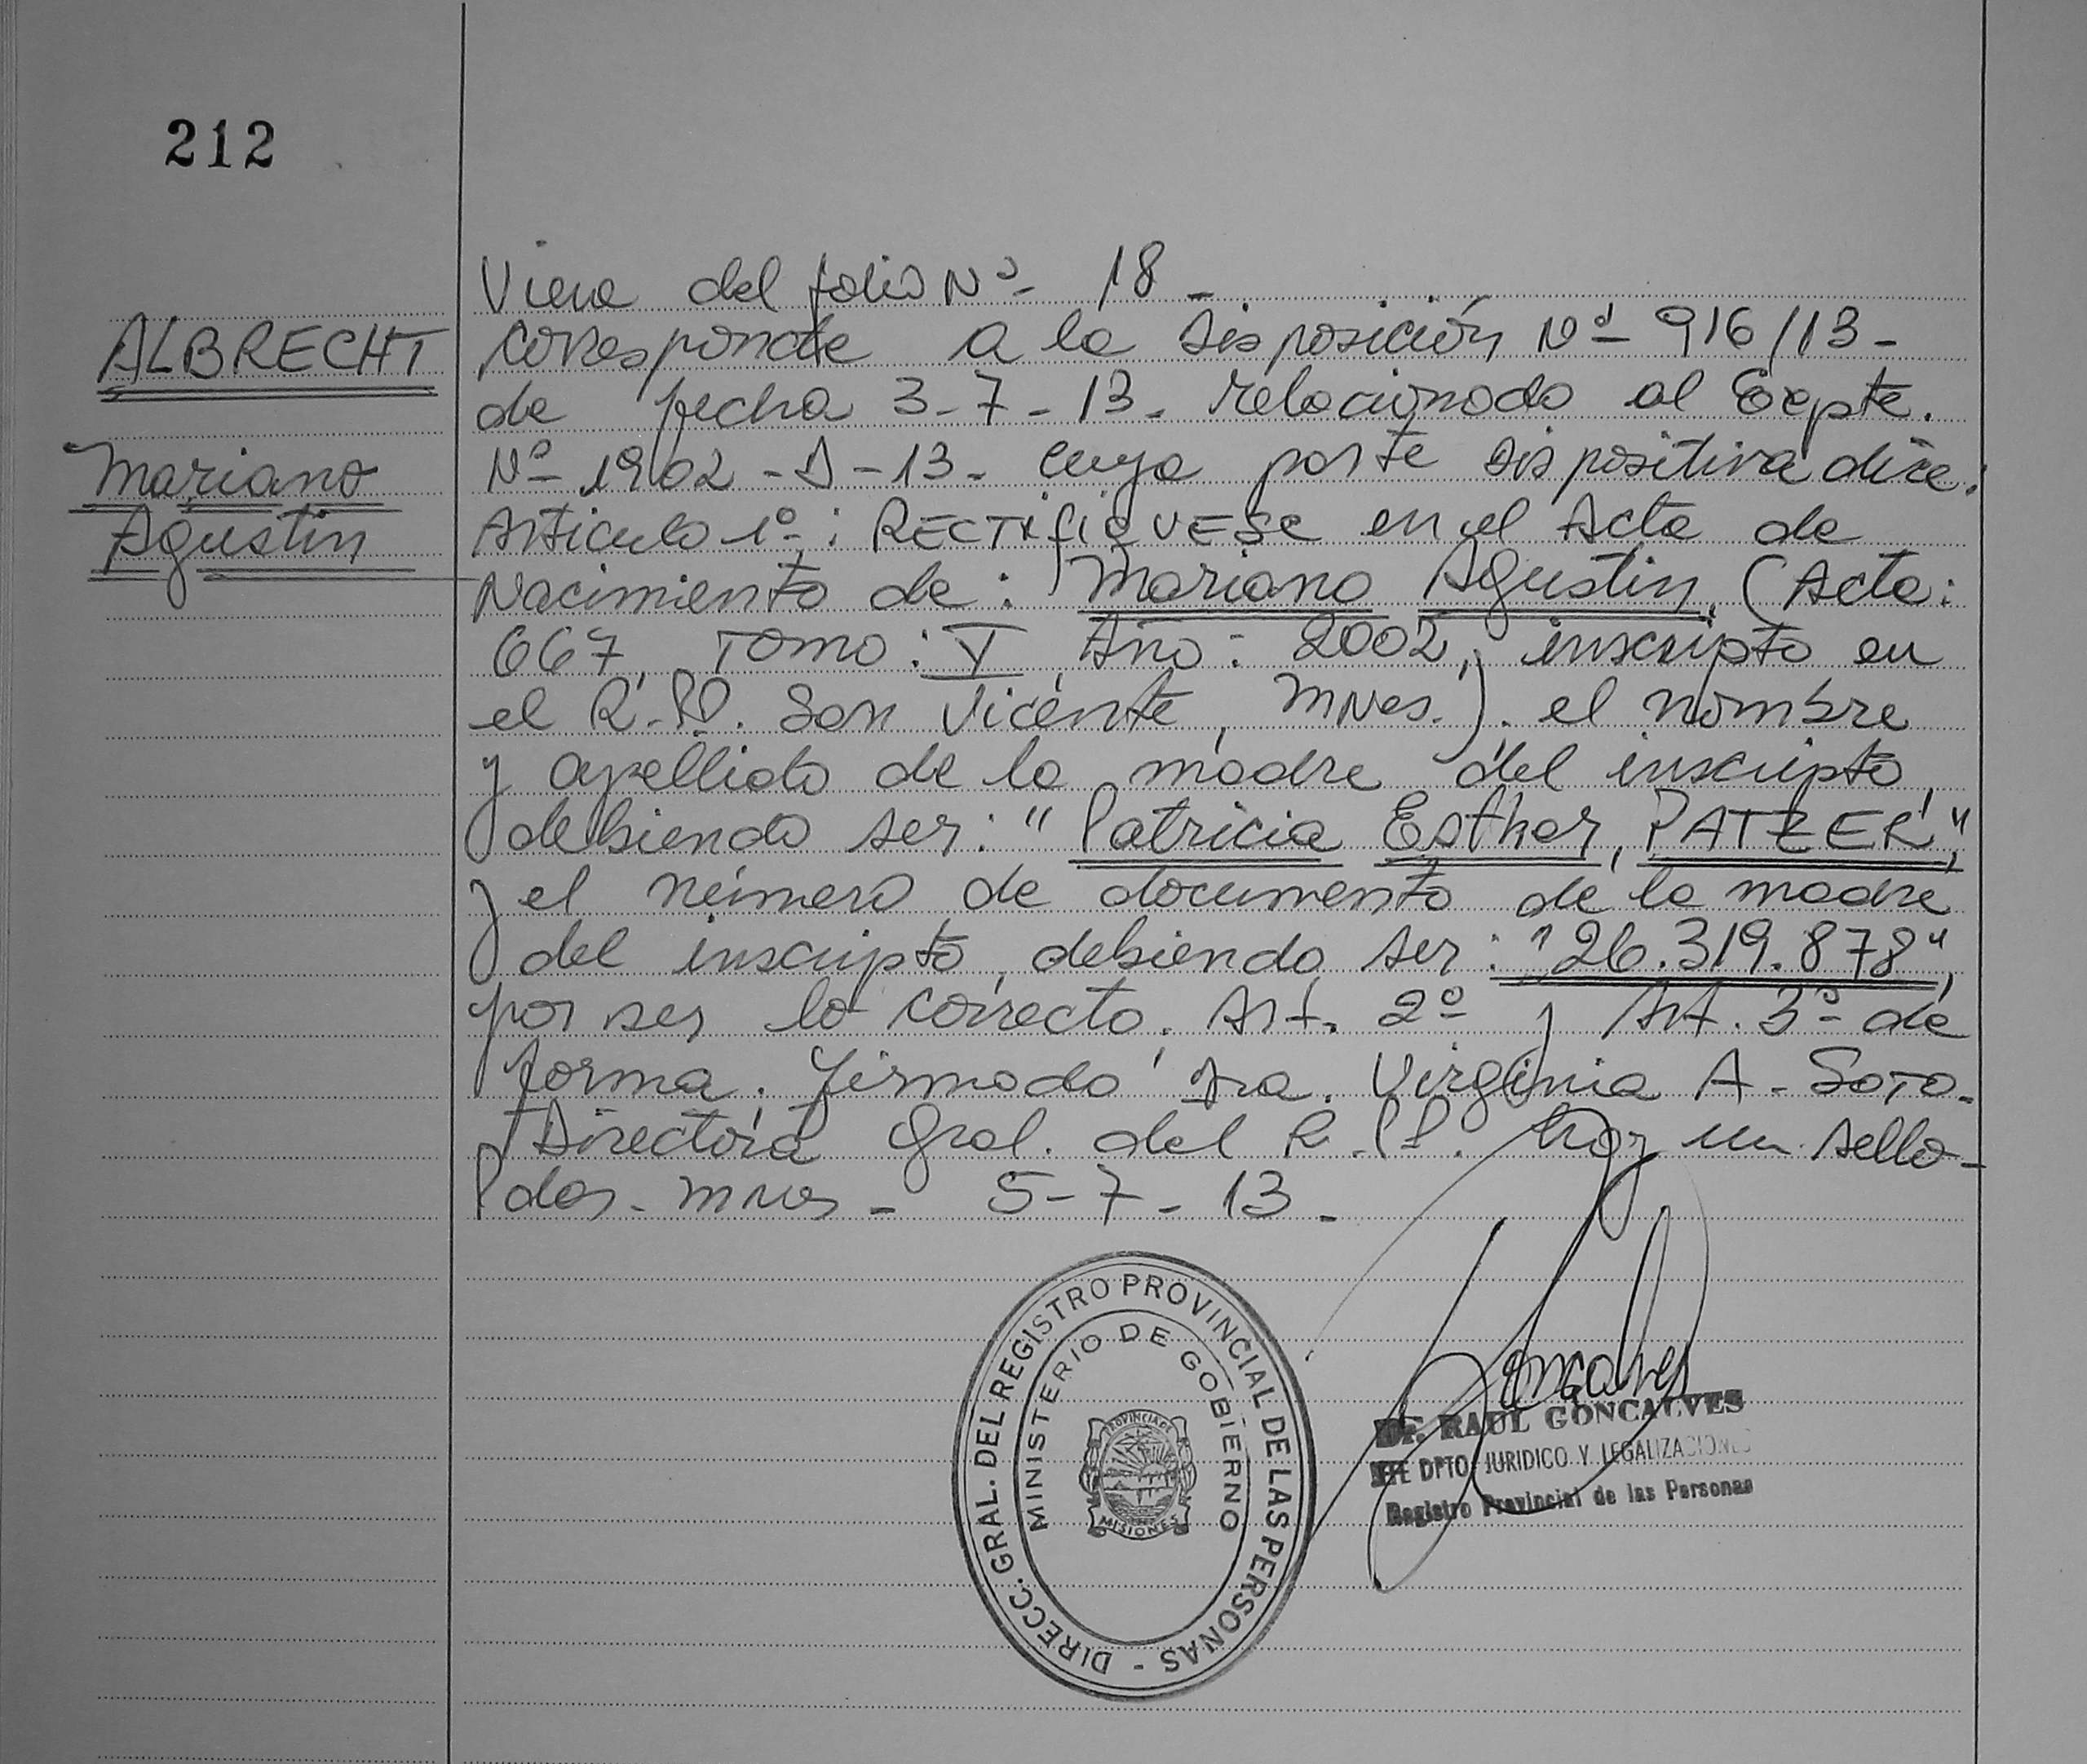 212
ALBRECHT
Mariano
Agustin
Viene del folio Nº 18 -
corresponde a la Disposición Nº 916/13 -
de fecha 3-7-13. relacionado al Expte.
Nº 1902 - D - 13 - cuya parte dispositiva dice:
Articulo 1º: RECTIFIQUESE en el Acta de
Nacimiento de: Mariano Agustin, (Acta:
667, Tomo: V, Año: 2002, inscripto en
el R.P.P. San Vicente, Mnes.). el nombre
y apellido de la madre del inscripto,
debiendo ser: "Patricia Esther, PATZER",
y el número de documento de la madre
del inscripto, debiendo ser: "26.319.878",
por ser lo correcto. Art. 2º y Art. 3º de
forma. Firmado Dra. Virginia A. Soto.
Directora Gral. del R.P.P. hay un sello-
Pdas. Mnes - 5-7-13.
DIRECC. GRAL. DEL REGISTRO PROVINCIAL DE LAS PERSONAS -
MINISTERIO DE GOBIERNO
PROVINCIA DE
MISIONES
Goncalves
Dr. RAUL GONCALVES
JEFE DPTO. JURIDICO Y LEGALIZACIONES
Registro Provincial de las Personas